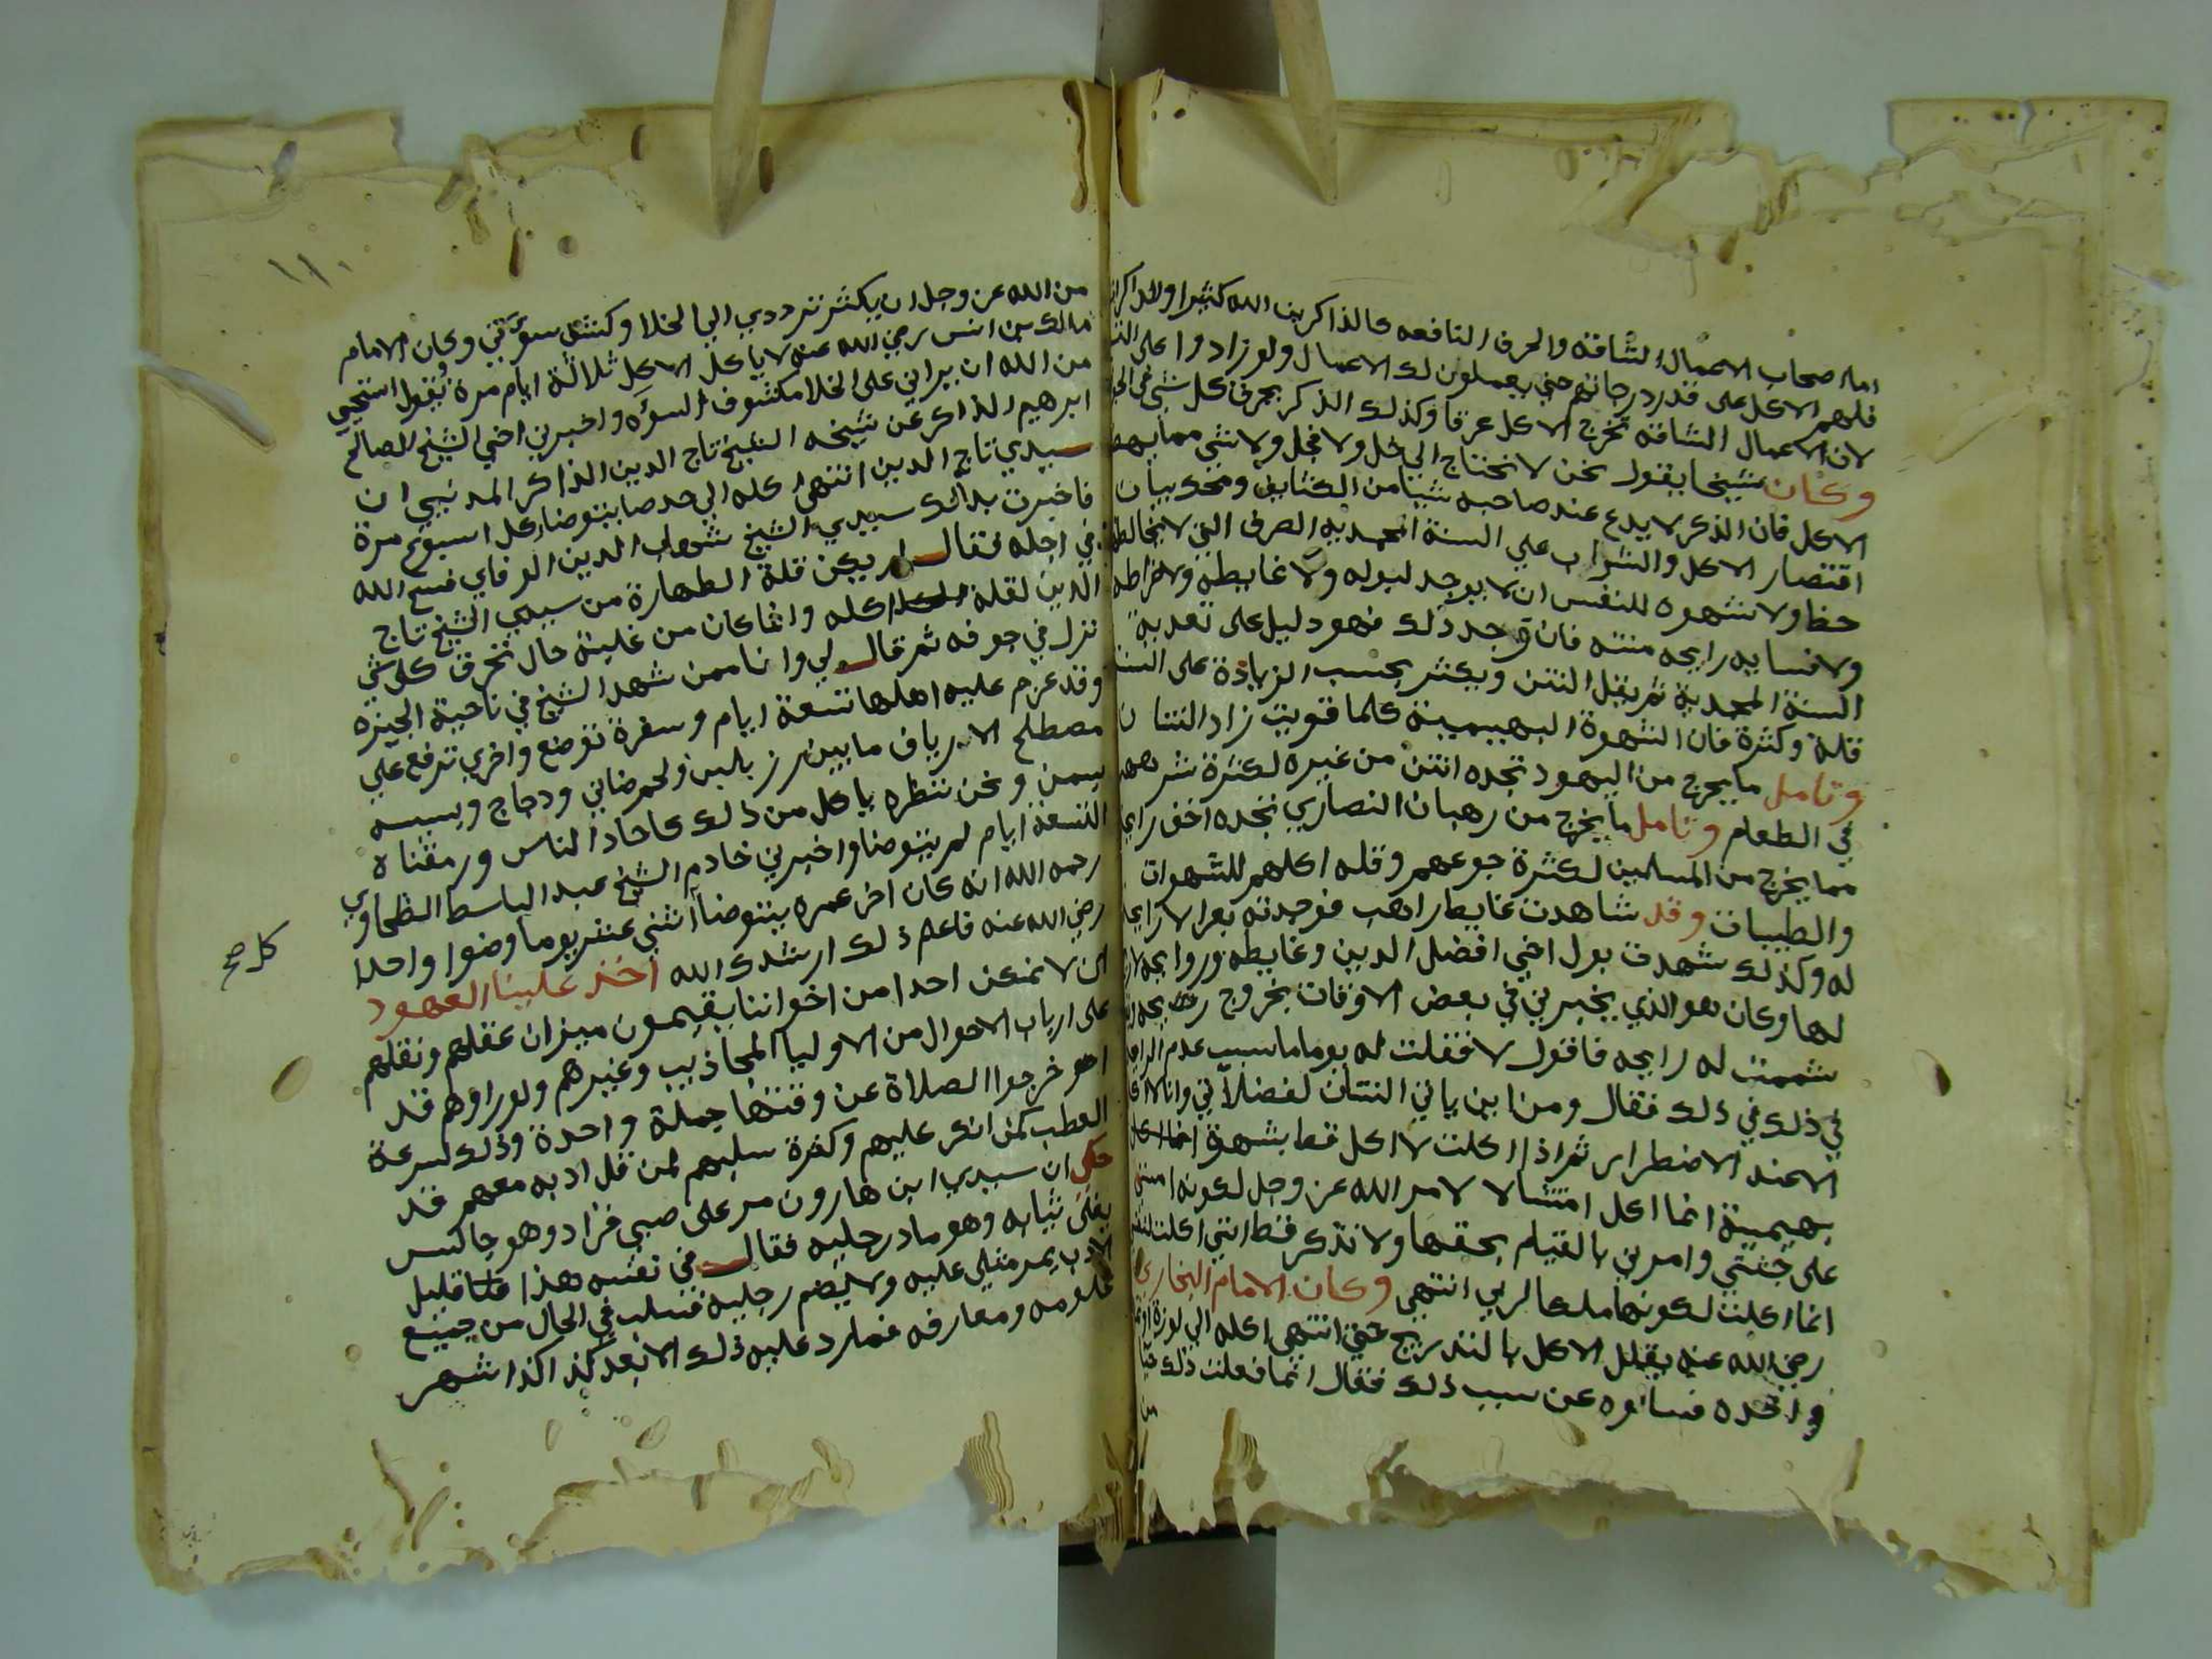 اما اصحاب الاعمال الشاقة والحرف النافعه كالذاكرين الله كثيرا والذاكرات
فلهم الاكل على قدر درجاتهم حتى يعملون لك الاعمال ولو زادوا على
لان الاعمال الشاقه تخرج الاكل عرقا وكذلك الذكر يحرق كل شئ في
وكان شيخنا يقول نحن لا نحتاج الي خل ولا فجل ولا شئ مما يهضم
الاكل فان الذكر لا يدع عند صاحبه شيا من الكثايف ومحك بيان
اقتصار الاكل والشراب علي السنة المحمديه الصرف التي لا يخالطها
حظ ولا شهوه للنفس ان لا يوجد لبوله ولا غايطه ولا ضراطه
ولا فسايه رايحه منتنه فان وجد ذلك فهو دليل على تعديه
السنة المحمدية ثم يقل النتن ويكثر بحسب الزيادة على السنة
قلة وكثرة فان الشهوة البهيمية كلما قويت زاد النتنان
وتامل ما يخرج من اليهود تجده انتن من غيره لكثرة شرههم
في الطعام وتامل ما يخرج من رهبان النصاري تجده اخف رايحة
مما يخرج من المسلمين لكثرة جوعهم وقله اكلهم للشهوات
والطيبات وقد شاهدت غايط راهب فوجدته بعرا لا رايحه
له وكذلك شهدت بول اخي افضل الدين وغايطه وروايحه لا
لها وكان هو الذي يخبرني في بعض الاوقات بخروج
شممت له رايحه فاقول لا فقلت له يوما ما سبب عدم الرايحه
في ذلك في ذلك فقال ومن اين ياتي النتنان لفضلاتي وانا لا
الا عند الاضطرار ثم اذا اكلت لا اكل قط بشهوة
بهيمية انما اكل امتثالا لامر الله عز وجل لكونه
على جثتي وامرني بالقيام بحقها ولا تذكر قط انني اكلت
انما اكلت لكونها ملكا لربي انتهى وكان الامام البخاري
رضي الله عنه يقلل الاكل بالتدريج حتى انتهى اكله الي لوزة
واحده فسالوه عن سبب ذلك فقال انما فعلت ذلك حيا
من
١١٠
من الله عز وجل ان يكثر ترددي الي الخلا وكشف سوتي وكان الامام
مالك بن انس رضي الله عنه لا ياكل الا كل ثلاثة ايام مرة ويقول استحي
من الله ان يراني على الخلا مكشوف السوه واخبرني اخي الشيخ الصالح
ابرهيم الذاكر عن شيخه الشيخ تاج الدين الذاكر المدني ان
سيدي تاج الدين انتهى اكله الي حد صار يتوضا كل اسبوع مرة
فاخبرت بذلك سيدي الشيخ شهاب الدين الوفاي فسح الله
في اجله فقال لم يكن قلة الطهارة من سيدي الشيخ تاج
الدين لقلة اكله وانما كان من غلبة حال تحرق كل شي
نزل في جوفه ثم قال لي وانا ممن شهد الشيخ في ناحية الجيزه
وقد عزم عليه اهلها تسعة ايام وسفرة توضع واخري ترفع علي
مصطلح الارياف ما بين رز بلبن ولحم ضاني ودجاج وبيسه
بسمن ونحن ننظره ياكل من ذلك كاحاد الناس ورمقناه
التسعة ايام لم يتوضا واخبرني خادم الشيخ عبد الباسط الطحاوي
رحمه الله انه كان اخر عمره يتوضا اثني عشر يوما وضوا واحدا
رضي الله عنه فاعلم ذلك ارشدك الله اخذ علينا العهود
ان لا نمنعن احدا من اخواننا يقيمون ميزان عقلهم ونقلهم
على ارباب الاحوال من الاوليا المجاذيب وغيرهم ولو راوهم قد
اخرجوا الصلاة عن وقتها جملة واحدة وذلك لسرعة
العطب لمن انكر عليهم وكثرة سلبهم لمن قل ادبه معهم قد
حكي ان سيدي ابن هارون مر على صبي قراد وهو جالس
يفلي ثيابه وهو ماد رجليه فقال في نفسه هذا قليل
الادب يمر مثلي عليه ولا يضم رجليه فسلب في الحال من جميع
علومه ومعارفه فما رد عليه ذلك الا بعد كذا كذا شهر
كل صح